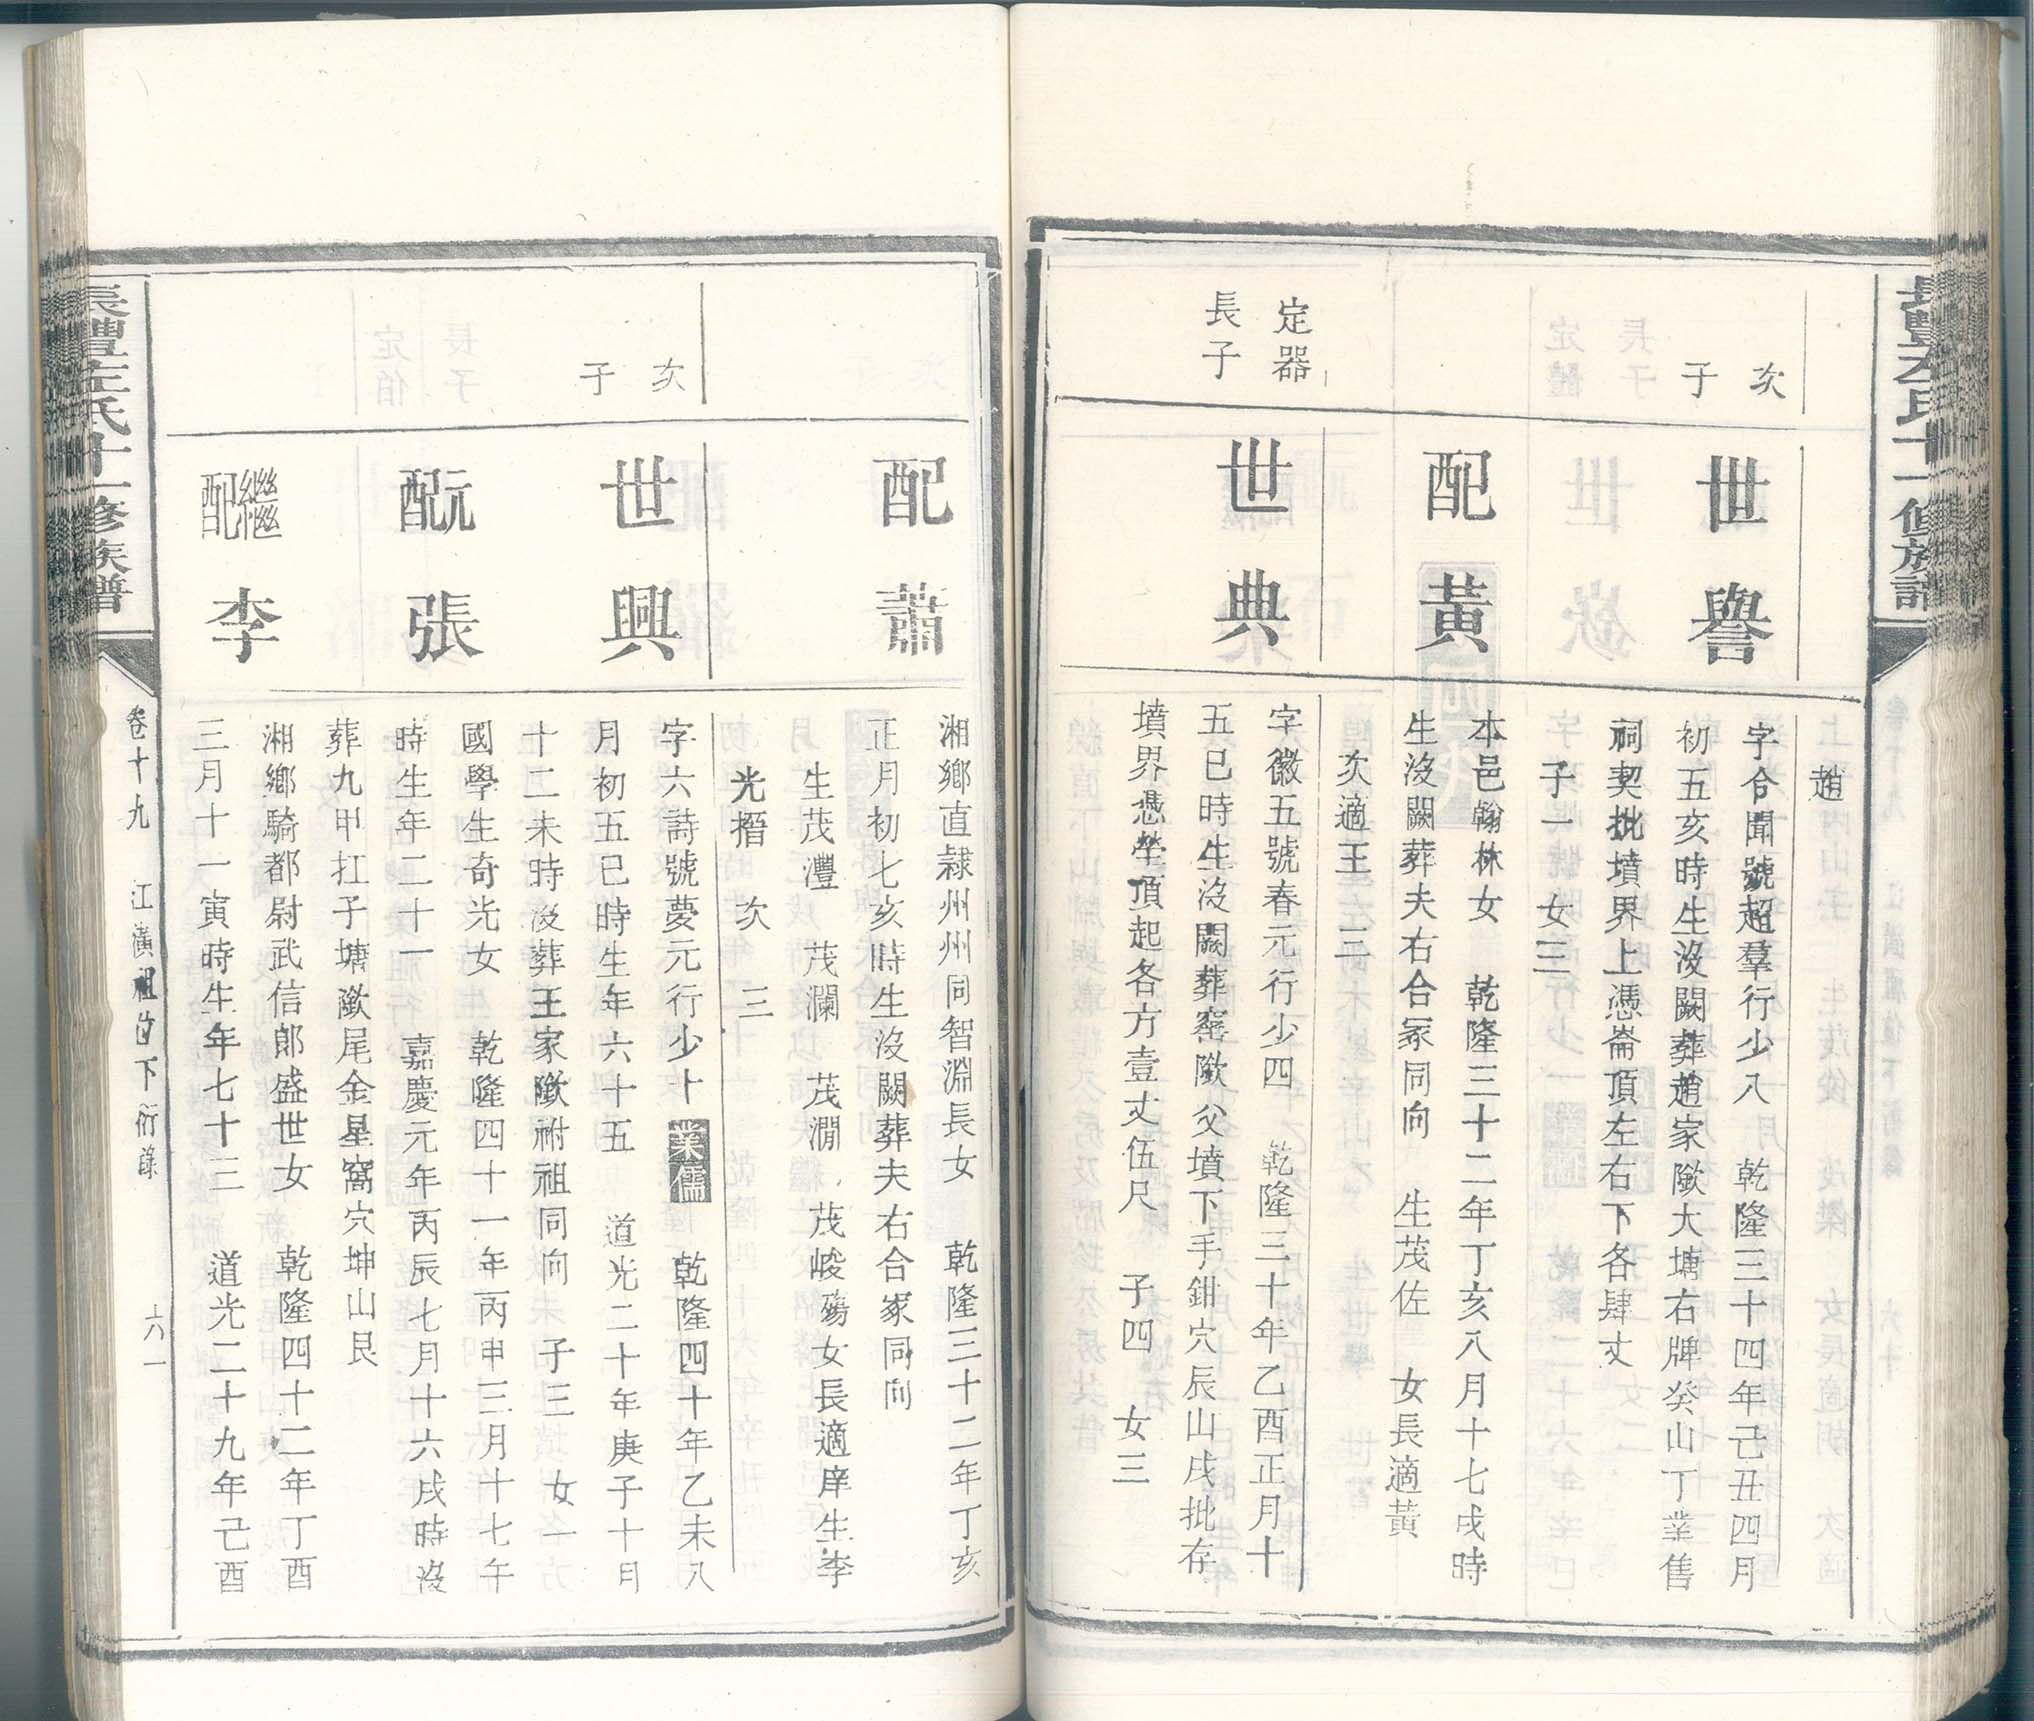 趙
次子
世譽
字合聞號超羣行少八　乾隆三十四年己丑四月
初五亥時生沒闕葬趙家歘大塘右牌癸山丁業售
祠契批墳界上憑崙頂左右下各肆丈
子一　女三
配黃
本邑翰林女　乾隆三十二年丁亥八月十七戌時
生沒闕葬夫右合冢同向　生茂佐　女長適黃
次適王　三
定器
長子
世典
字徽五號春元行少四　乾隆三十年乙酉正月十
五巳時生沒闕葬窰歘父墳下手鉗穴辰山戌批存
墳界憑塋頂起各方壹丈伍尺　子四　女三
配蕭
湘鄉直隷州州同智淵長女　乾隆三十二年丁亥
正月初七亥時生沒闕葬夫右合冢同向
生茂灃　茂瀾　茂澗　茂峻殤女長適庠生李
光搢　次　三
次子
世興
字六詩號夢元行少十　業儒　乾隆四十年乙未八
月初五巳時生年六十五　道光二十年庚子十月
十二未時沒葬王家歘祔祖同向　子三　女一
元配張
國學生奇光女　乾隆四十一年丙申三月十七午
時生年二十一　嘉慶元年丙辰七月十六戌時沒
葬九甲扛子塘歘尾金星窩穴坤山艮
繼配李
湘鄉騎都尉武信郎盛世女　乾隆四十二年丁酉
三月十一寅時生年七十三　道光二十九年己酉
長豐左氏十一修族譜
卷十九　江廣祖位下衍錄　六一